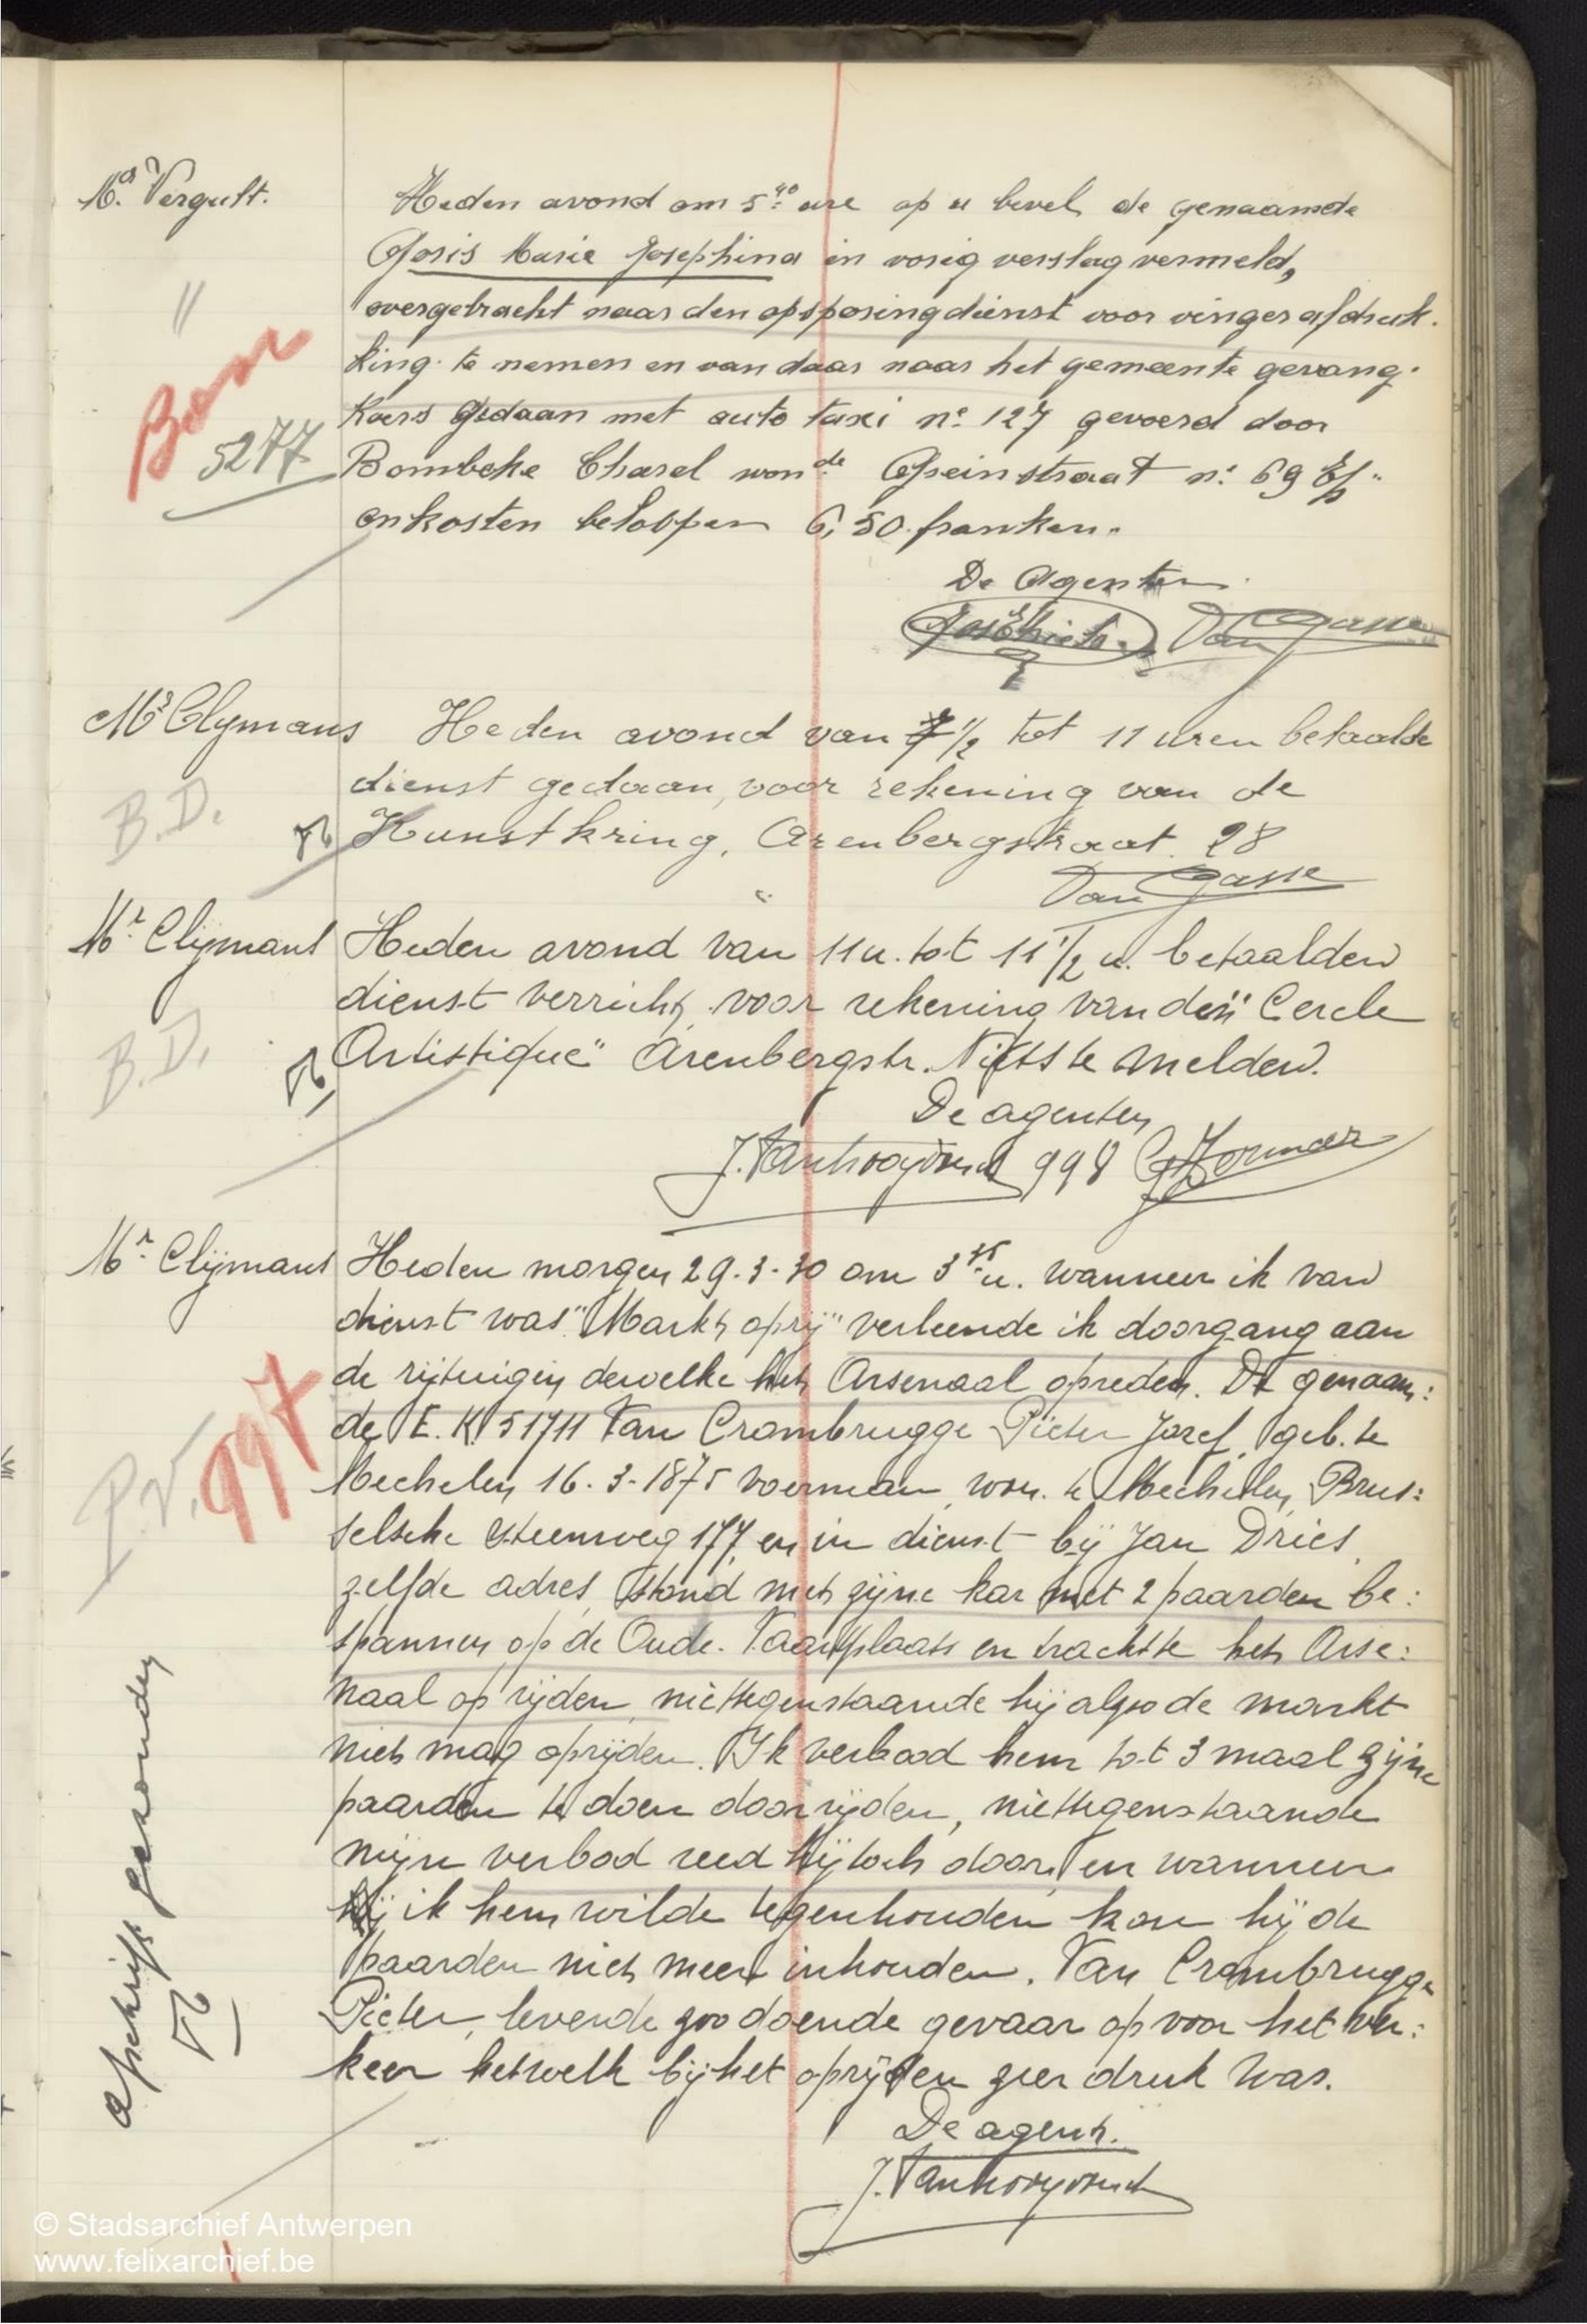 Mr. Vergult.
Heden avond om 5.40 ure op u bevel de genaamde
Joris Marie Josephina in vorig verslag vermeld,
"
overgebracht naar den opsporingdienst voor vingerafdruk.
king te nemen en van daar naar het gemeente gevang.
Bom
Koers gedaan met auto taxi n° 127 gevoerd door
5277
Bombeke Charel wonde straat n: 69
onkosten beloopen 6,50 franken.
De Agenten
Van Gasse
Mr Clymans
Heden avond van 7 1/2 tot 11 uren betaalde
dienst gedaan, voor rekening van de
B.D.
Kunstkring, Arenbergstraat 28
Van Gasse
Mr. Clijmans
Heden avond van 11 u. tot 11 1/2 u. betaalden
dienst verricht, voor rekening van den "Cercle
B.D.
Artistique" Arenbergstr. Niets te melden.
De agenten
998
Mr. Clijmans
Heden morgen 29-3-30 om 3 u. wanneer ik van
dienst was "Markt oprij" verleende ik doorgang aan
de rijtuigen dewelke het Arsenaal opreden. De genaam:
997
de E.K. 51711 Van Crombrugge Pieter Jozef, geb. te
P.V.
Mechelen 16-3-1875 voerman, won. te Mechelen, Brus:
selsche steenweg 177, en in dienst bij Jan Dries,
zelfde adres, stond met zijne kar met 2 paarden be:
spannen op de Oude Vaartplaats en trachtte het Arse:
naal op rijden, niettegenstaande hij alzoo de markt
niet mag oprijden. Ik verbood hem tot 3 maal zijne
paarden te doen doorrijden, niettegenstaande
mijn verbod reed hij toch door, en wanneer
ik hem wilde tegenhouden kon hij de
paarden niet meer inhouden. Van Crombrugge
Pieter, leverde zoodoende gevaar op voor het ver:
keer hetwelk bij het oprijden zeer druk was.
afschrift gezonden
De agent.
© Stadsarchief Antwerpen
www.felixarchief.be